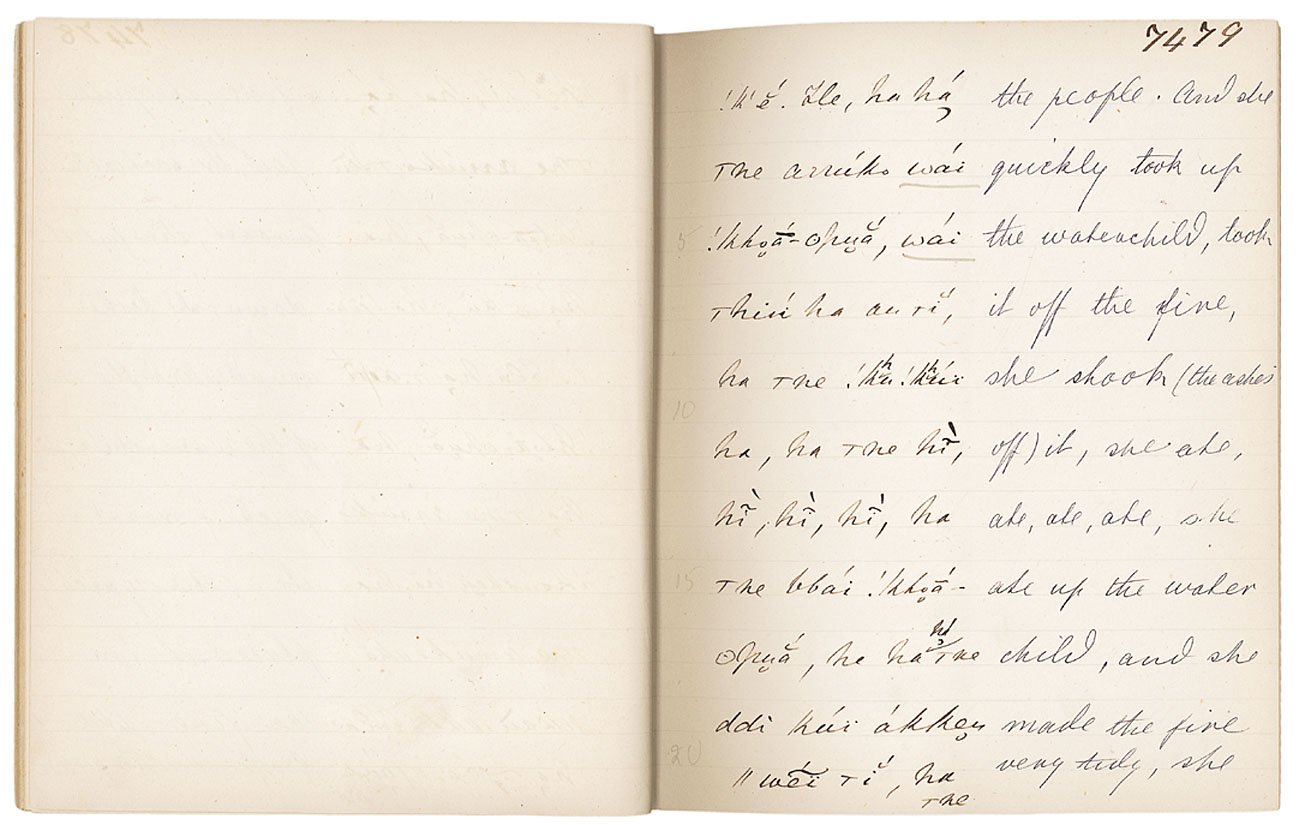 7479
!k'ĕ́. He, ha há̦ the people. And she
τne arrúko wái quickly took up
5 !kho̤ā́-ʘpu̯ắ, wái the waterchild, took
τhiń ha au τĭ́, it off the fire,
ha τne !kʰu !kʰúï she shook (the ashes
10
ha, ha τne hĩ̀, off) it, she ate,
hĩ̀, hĩ̀, hĩ̀, ha ate, ate, ate, she
15 τne bbái !kho̤ā́- ate up the water
ʘpu̯ắ, he ha há̦ τne child, and she
ddi kúï ákken̤ made the fire
20 ǁwéï τĭ́, ha very tidy, she
τne